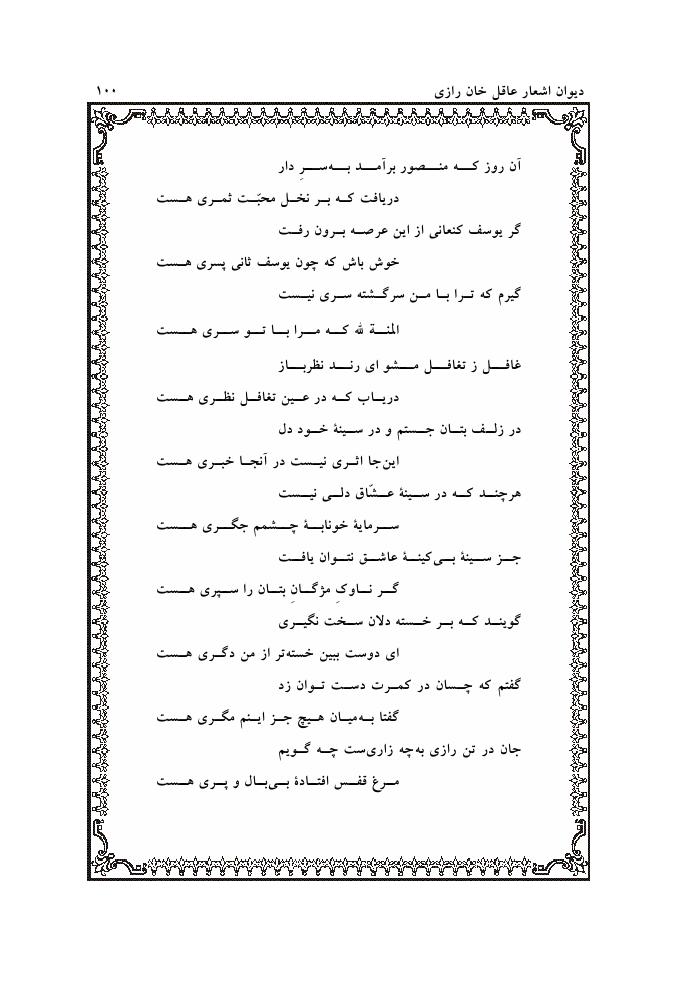 دیوان اشعار عاقل خان رازی ۱۰۰
آن روز که منصور برآمد به‌سرِ دار
دریافت که بر نخل محبّت ثمری هست
گر یوسف کنعانی از این عرصه برون رفت
خوش باش که چون یوسف ثانی پسری هست
گیرم که ترا با من سرگشته سری نیست
المنة لله که مرا با تو سری هست
غافل ز تغافل مشو ای رند نظرباز
دریاب که در عین تغافل نظری هست
در زلف بتان جستم و در سینۀ خود دل
این‌جا اثری نیست در آنجا خبری هست
هرچند که در سینۀ عشّاق دلی نیست
سرمایۀ خونابۀ چشمم جگری هست
جز سینۀ بی‌کینۀ عاشق نتوان یافت
گر ناوکِ مژگانِ بتان را سپری هست
گویند که بر خسته دلان سخت نگیری
ای دوست ببین خسته‌تر از من دگری هست
گفتم که چسان در کمرت دست توان زد
گفتا به‌میان هیچ جز اینم مگری هست
جان در تن رازی به‌چه زاری‌ست چه گویم
مرغ قفس افتادۀ بی‌بال و پری هست